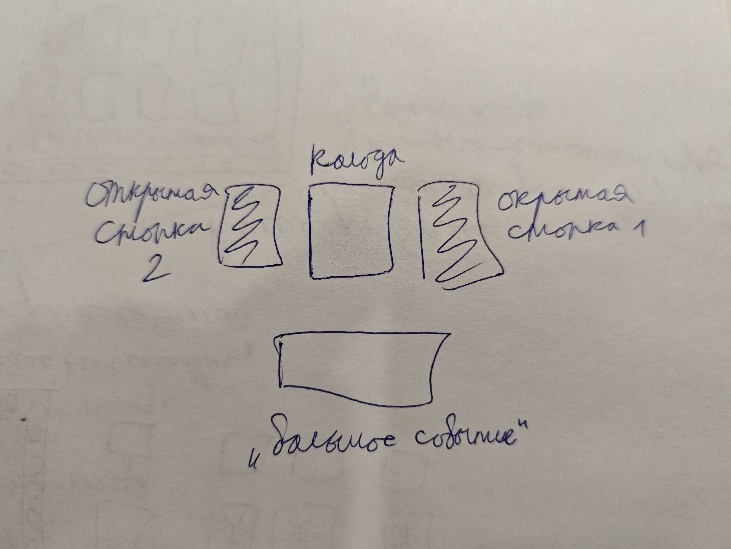 Колода
Открытая
стопка
2
окрытая
стопка 1
„большое событие“